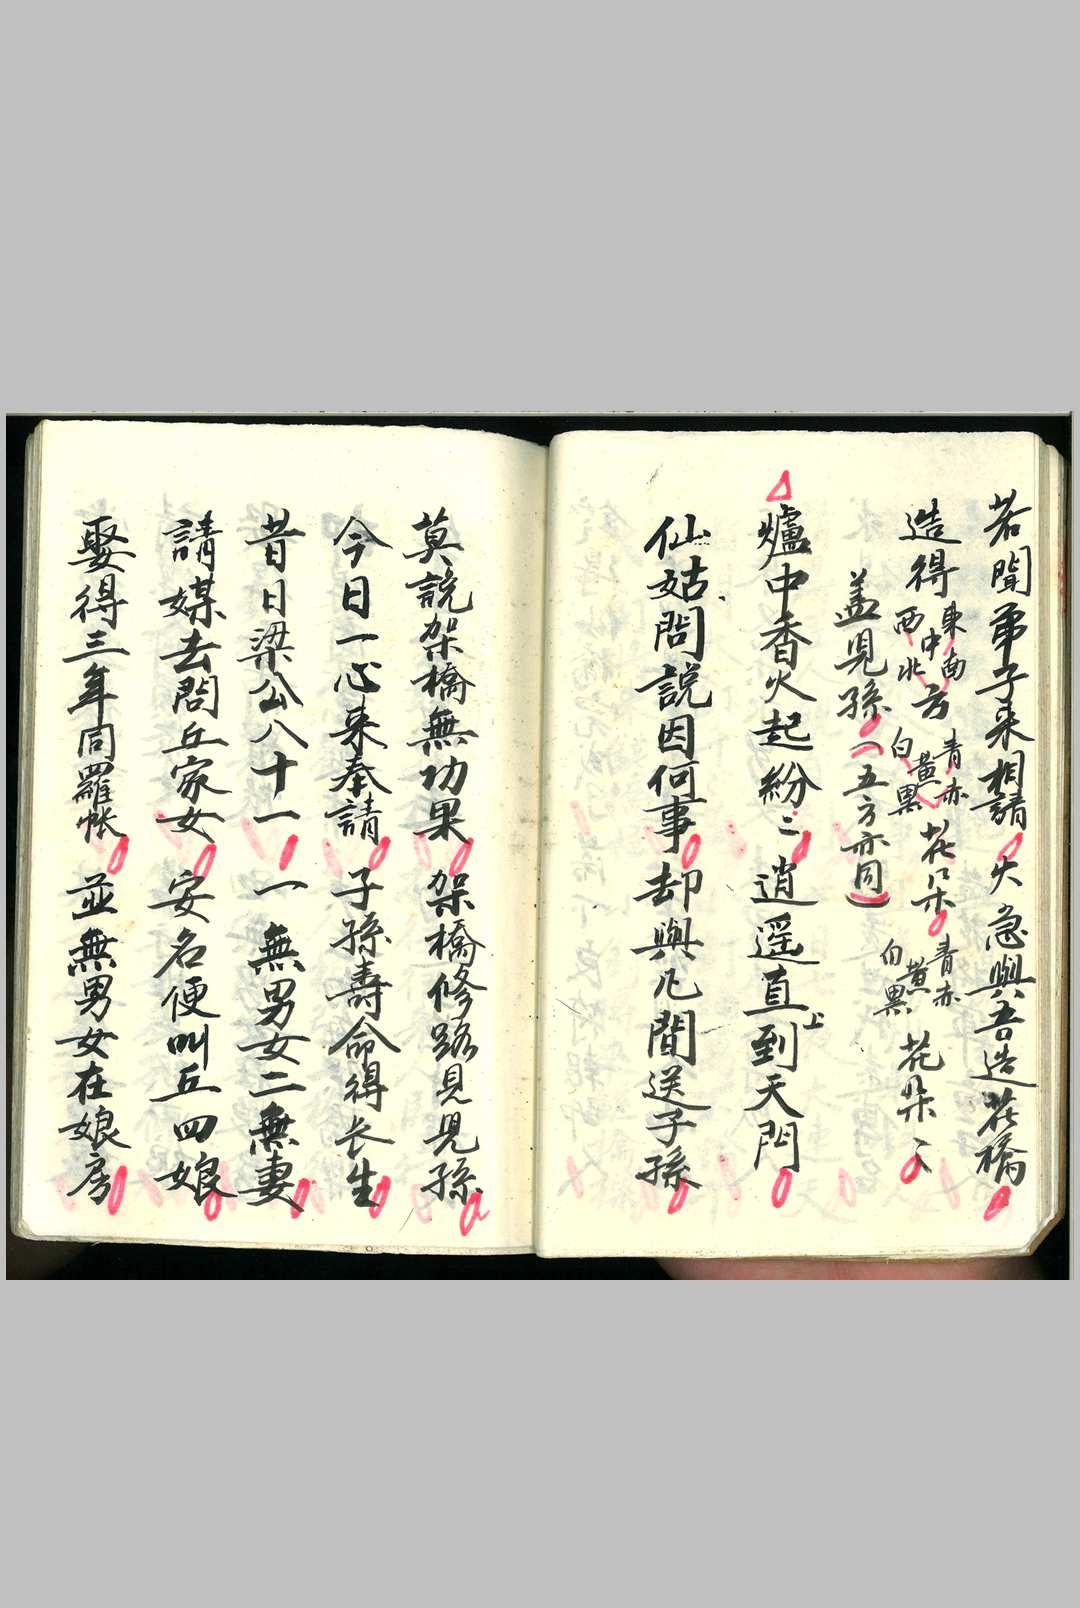 若聞弟子来相請火急與吾造花橋
造得東南中西北方青赤黄白黑花朵青赤黄白黑花朵〻
盖見孫(五方亦同)
爐中香火起紛〻逍遥直上到天門
仙姑問説因何事却與凡間送子孫
莫説架橋無功果架橋修路見見孫
今日一心来奉請子孫壽命得长生
昔日梁公八十一一無男女二無妻
請媒去問丘家女安名便叫丘四娘
娶得三年同羅帐並無男女在娘房